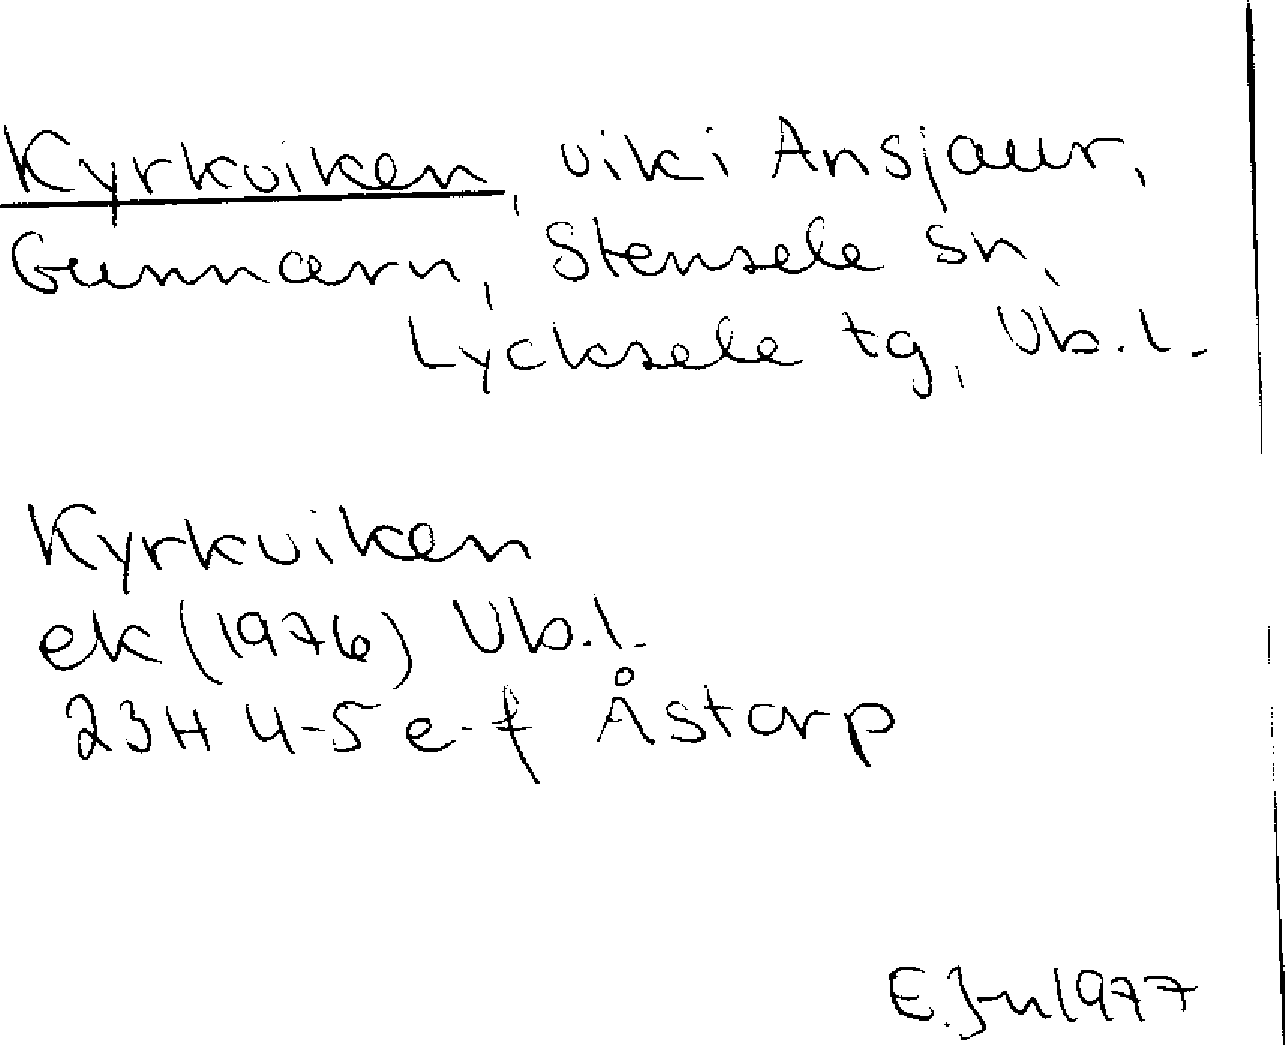 Kyrkviken, vik i Ansjaur,
Gunnarn, Stensele sn,
Lycksele tg, Vb.l.
Kyrkviken
ek (1976) Vb.l.
23H 4-5 e-f Åstorp
E.J-n 1977